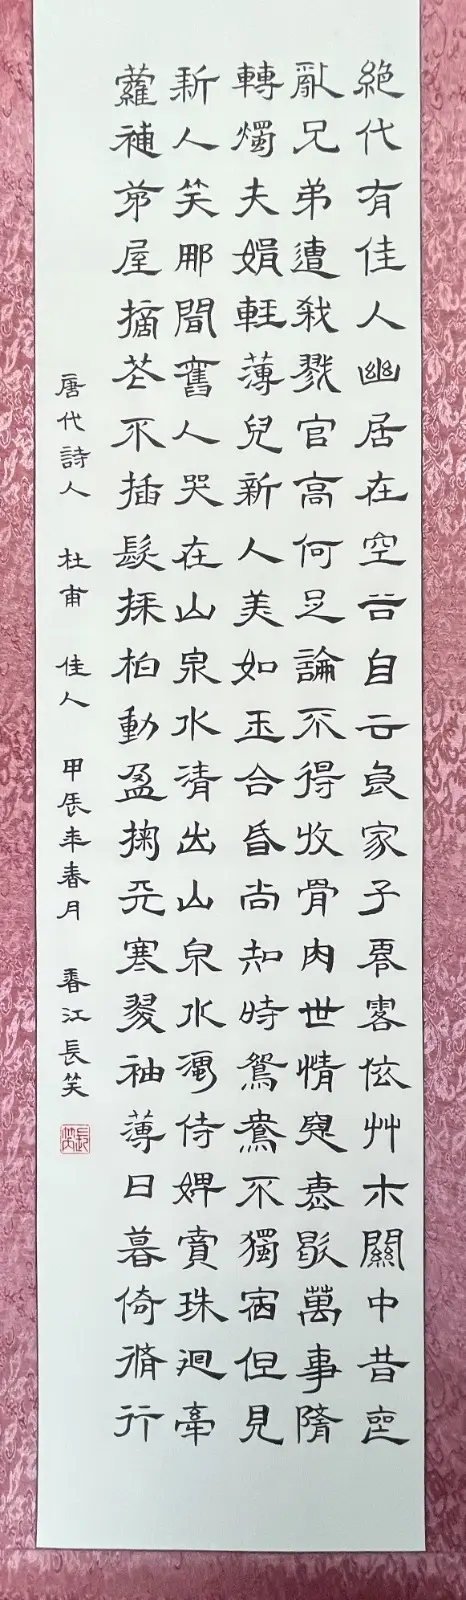 絕代有佳人幽居在空谷自云良家子零落依艸木關中昔喪
亂兄弟遭殺戮官高何足論不得收骨肉世情惡衰歇萬事隨
轉燭夫婿輕薄兒新人美如玉合昏尚知時鴛鴦不獨宿但見
新人笑那聞舊人哭在山泉水清出山泉水濁侍婢賣珠迴牽
蘿補茅屋摘花不插髮採柏動盈掬天寒翠袖薄日暮倚脩竹
唐代詩人 杜甫 佳人 甲辰年春月 春江長笑